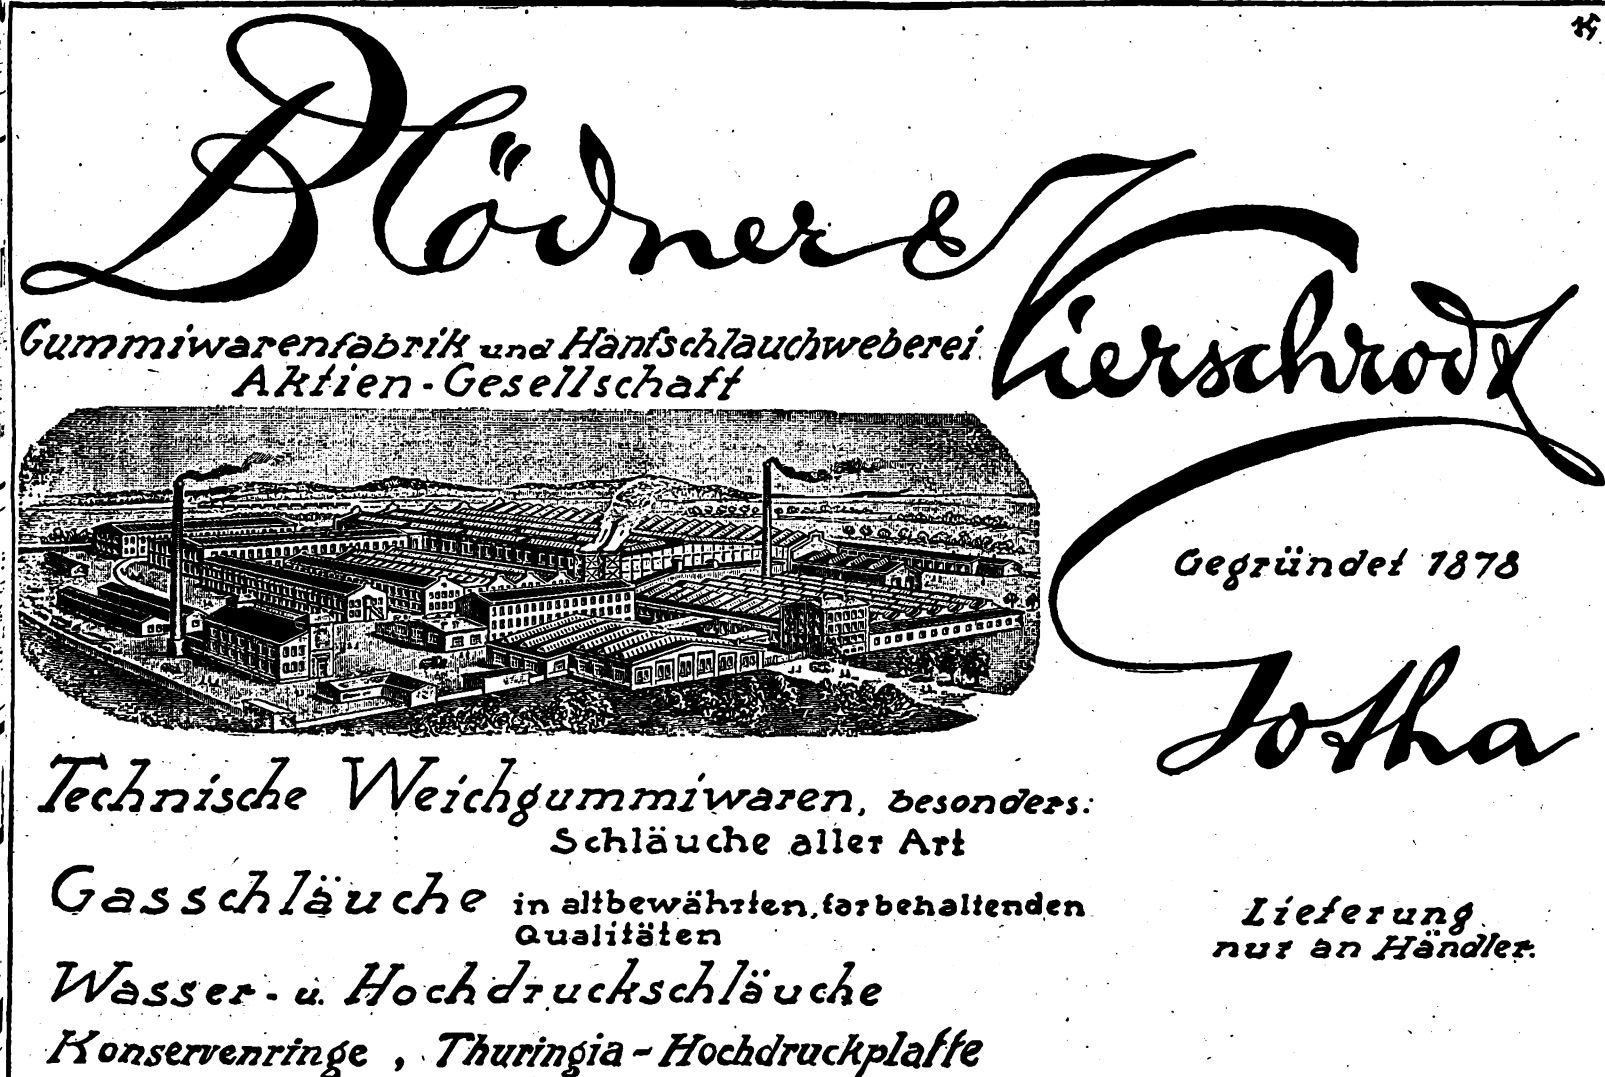 Blödner & Vierschrodt
Gummiwarenfabrik und Hanfschlauchweberei
Aktien-Gesellschaft
Gegründet 1878
Gotha
Technische Weichgummiwaren, besonders:
Schläuche aller Art
Gasschläuche in altbewährten, farbehaltenden
Qualitäten
Lieferung
nur an Händler.
Wasser- u. Hochdruckschläuche
Konservenringe, Thuringia-Hochdruckplatte